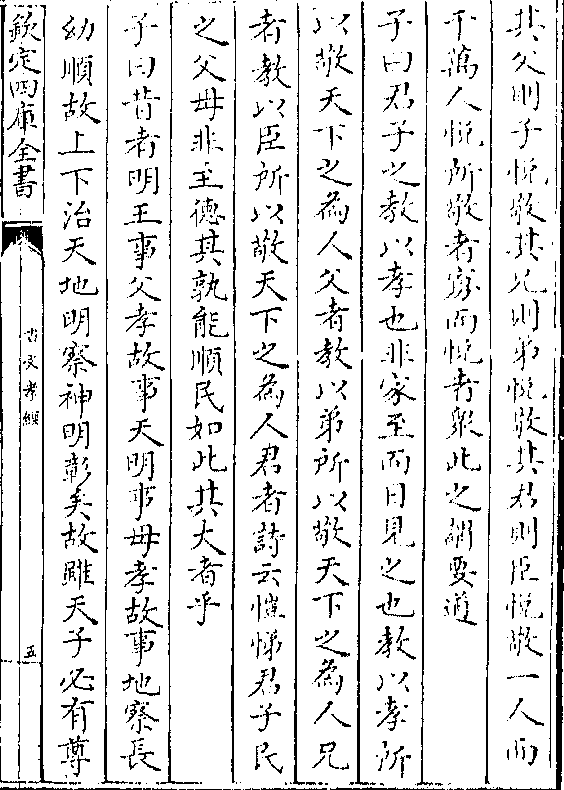 其父則子悦敬其兄則弟悦敬其君則臣悦敬一人而
千萬人悦所敬者寡而悦者衆此之謂要道
子曰君子之教以孝也非家至而日見之也教以孝所
以敬天下之為人父者教以弟所以敬天下之為人兄
者教以臣所以敬天下之為人君者詩云愷悌君子民
之父母非至德其孰能順民如此其大者乎
子曰昔者明王事父孝故事天明事母孝故事地察長
幼順故上下治天地明察神明彰矣故雖天子必有尊
欽定四庫全書
古文孝經
五